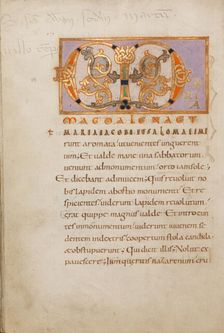 MAGDALENAET
MARIAIACOBIETSALOMAEEMI
erunt aromata utuenientes unguerent
eum. Et ualde mane una sabbatorum
ueniunt admonumentum orto iam sole.
Et dicebant adinuicem. Quis reuoluet no
bis lapidem abostio monumenti. Et re
spicientes uiderunt lapidem reuolutum.
erat quippe magnus ualde. Et introeun
tes inmonumentum uiderunt iuuenem se
dentem indextris coopertum stola candida
&obstupuerunt. Quidicit illis. Nolite ex
pauescere. Iesum quaeritis nazarenum cru